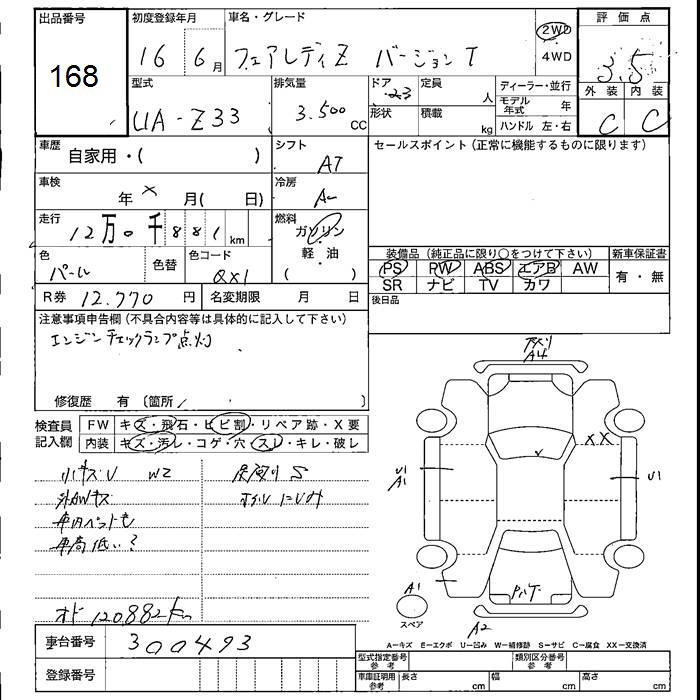 出品番号 初度登録年月 車名・グレード 評価点
168
16 6月 フェアレディZ バージョンT 2WD 3.5
4WD
型式 排気量 ドア 定員 ディーラー・並行 外装 内装
UA-Z33 3.500 cc 23 人 モデル年式 年 C C
形状 積載 kg ハンドル 左・右
車歴 自家用・( ) シフト AT セールスポイント (正常に機能するものに限ります)
車検 年 × 月( 日) 冷房
走行 12万0千881km 燃料 ガソリン・軽油 ( )
装備品 (純正品に限り○をつけて下さい) 新車保証書
色 パール 色替 色コード QX1 PS PW ABS エアB AW 有・無
SR ナビ TV カワ
R券 12.770円 名変期限 月 日 後日品
注意事項申告欄 (不具合内容等は具体的に記入して下さい)
エンジンチェックランプ点灯
A4
修復歴 有 〔箇所/ 〕
検査員記入欄 FW キズ・飛石・ヒビ割・リペア跡・X要
内装 キズ・汚レ・コゲ・穴・スレ・キレ・破レ
XX
小キズU W2 S
U1 A1 U1
外AWキズ
車内ペット毛
車高低い?
A1
スペア
オド 120882km
A2
車台番号 300493
A-キズ E-エクボ U-凹み W-補修跡 S-サビ C-腐食 XX-交換済
登録番号 型式指定番号 参考 類別区分番号 参考
車庫証明用 参考 長さ cm 幅 cm 高さ cm